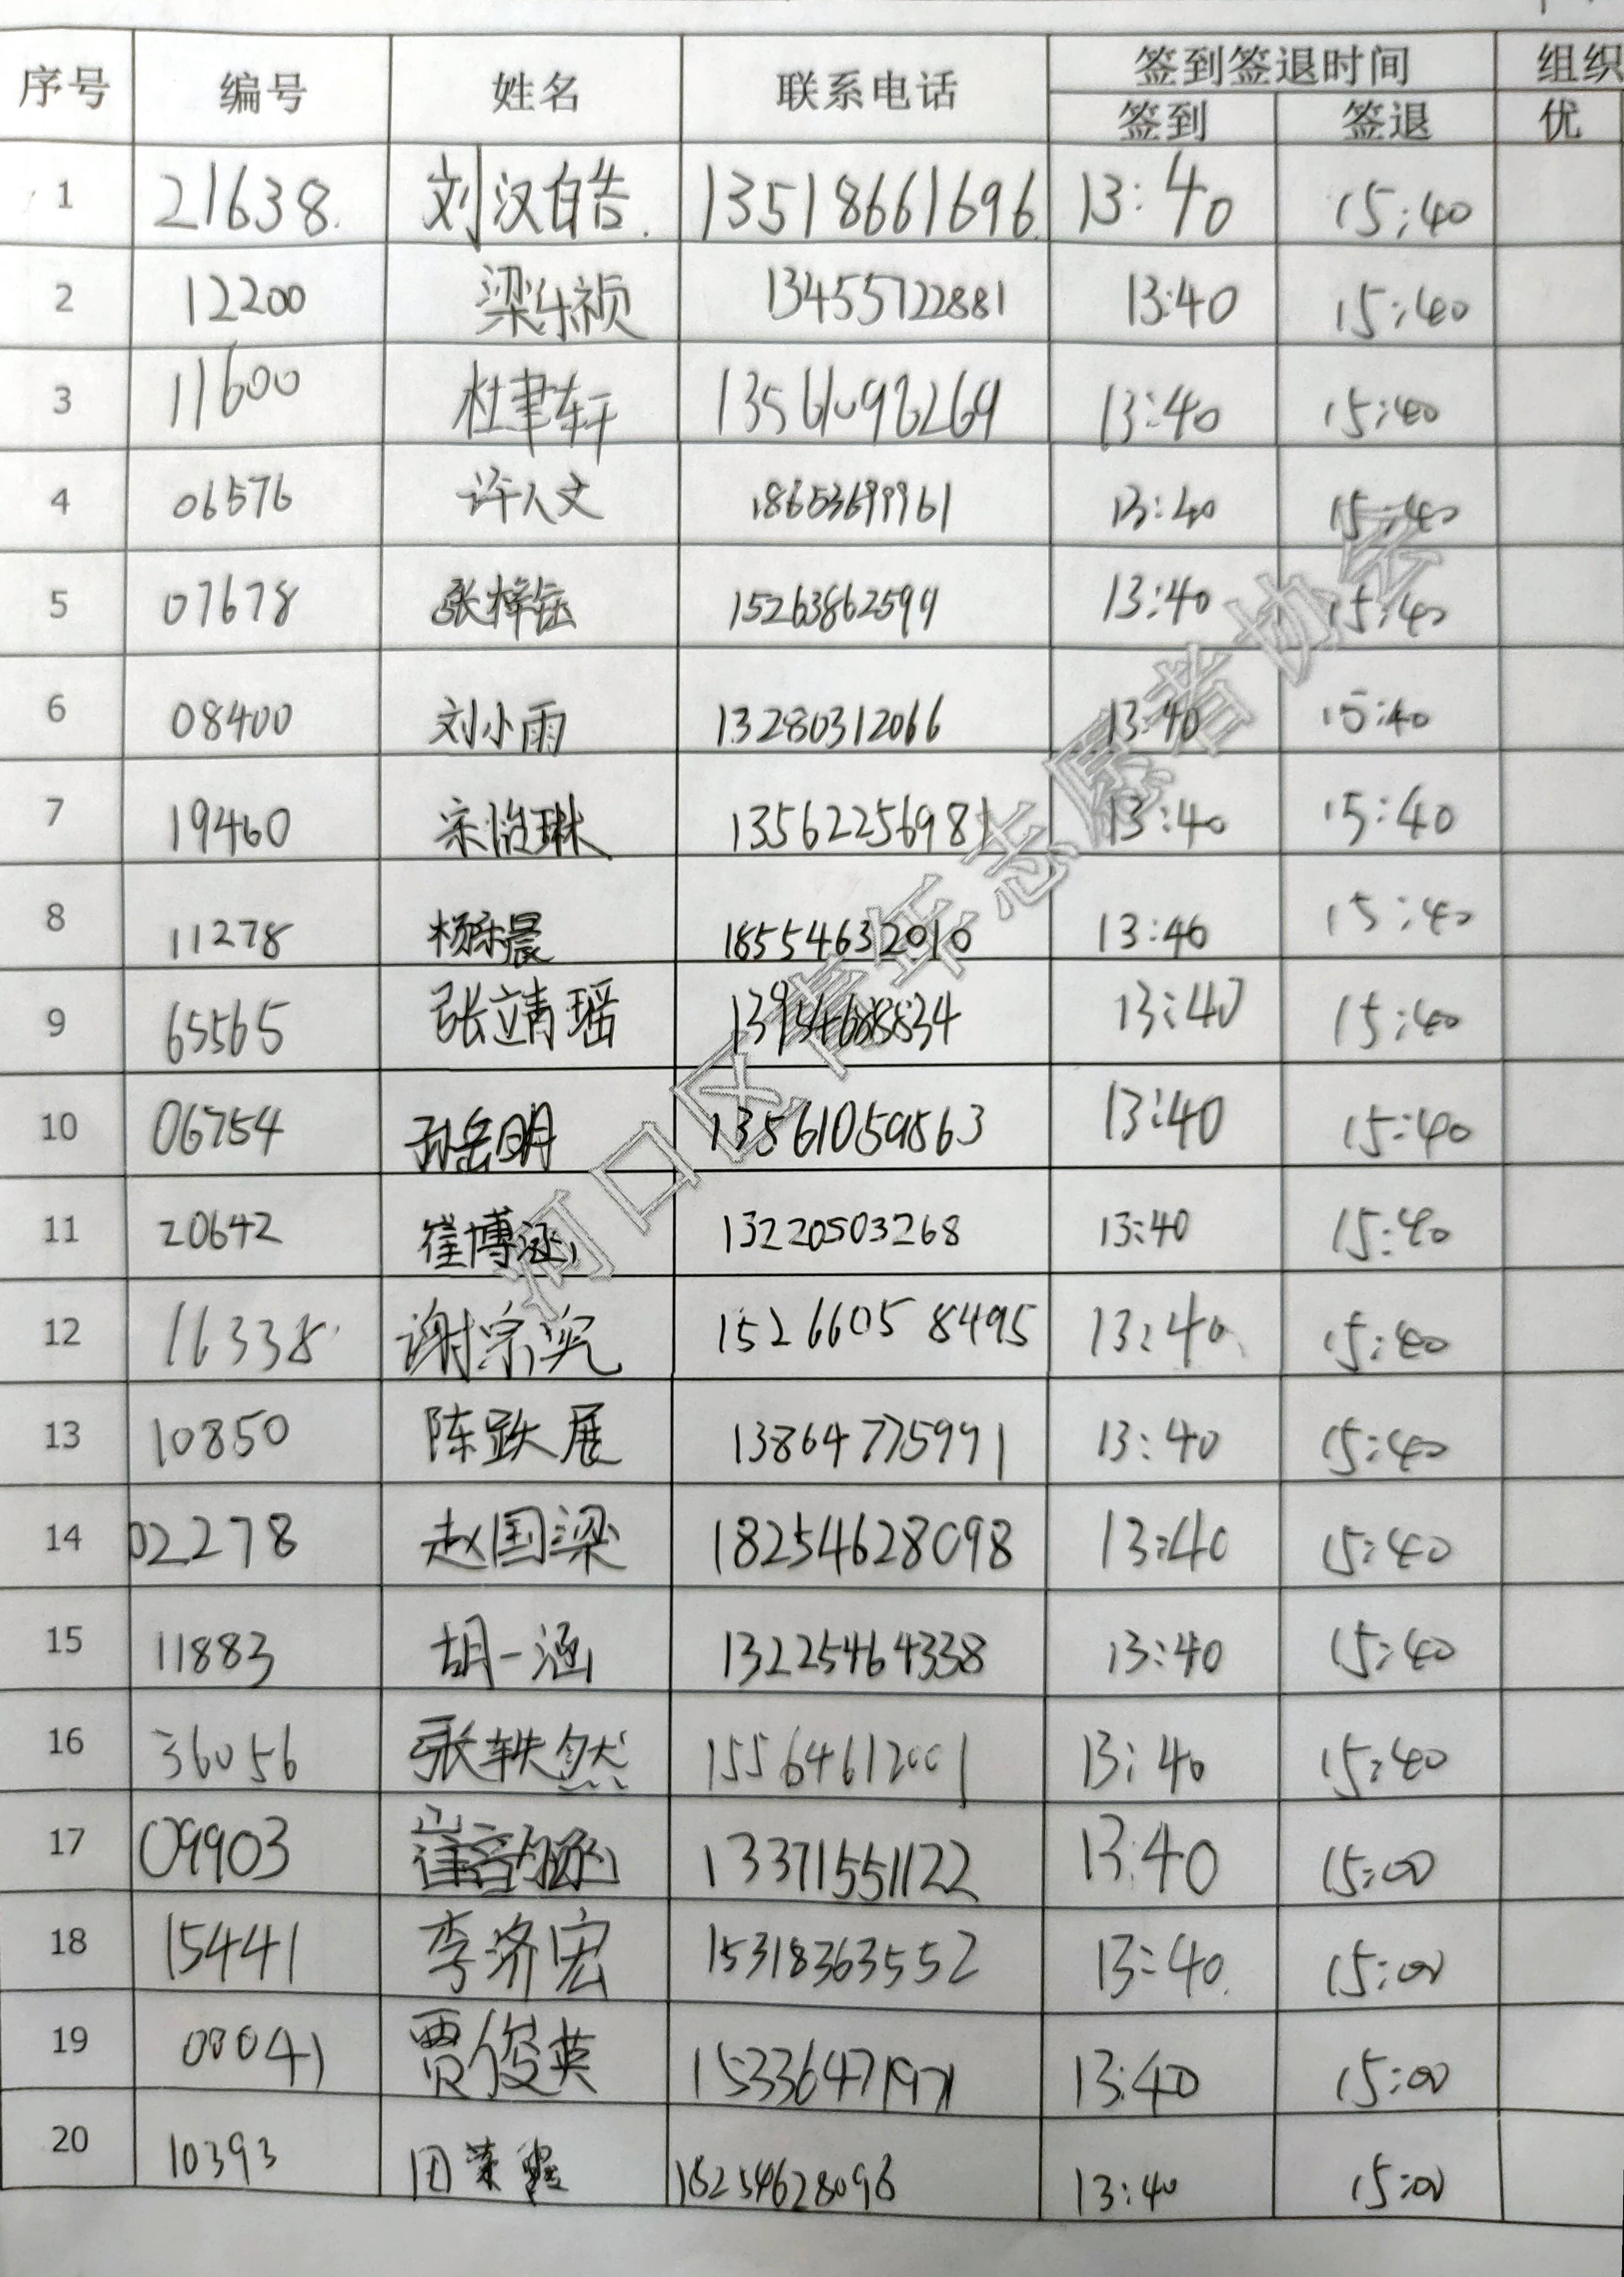 序号 编号 姓名 联系电话 签到签退时间 组织
签到 签退 优
1 21638. 刘汉皓. 13518661696. 13:40 15:40
2 12200 梁乐祯 13455722881 13:40 15:40
3 11600 杜聿轩 13561098269 13:40 15:40
4 06576 许人文 18653699961 13:40 15:40
5 07678 张梓钰 15263862599 13:40 15:40
6 08400 刘小雨 13280312066 13:40 15:40
7 19460 宋怡琳 13562256981 13:40 15:40
8 11278 18554632010 13:40 15:40
9 65565 张靖瑶 13:40 15:40
10 06754 孙岳明 13561059563 13:40 15:40
11 20642 崔博涵 13220503268 13:40 15:40
12 16338 15266058495 13:40 15:40
13 10850 陈跃展 13864775991 13:40 15:40
14 02278 赵国梁 18254628098 13:40 15:40
15 11883 胡一涵 13225464338 13:40 15:40
16 36056 张轶然 15564612001 13:40 15:40
17 09903 13371551122 13:40 15:00
18 15441 李济宏 15318363552 13:40 15:00
19 00041 贾俊英 15336471971 13:40 15:00
20 10393 18254628098 13:40 15:00
河口区青年志愿者协会